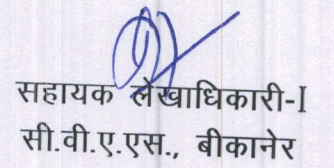 सहायक लेखाधिकारी-I
सी.वी.ए.एस., बीकानेर